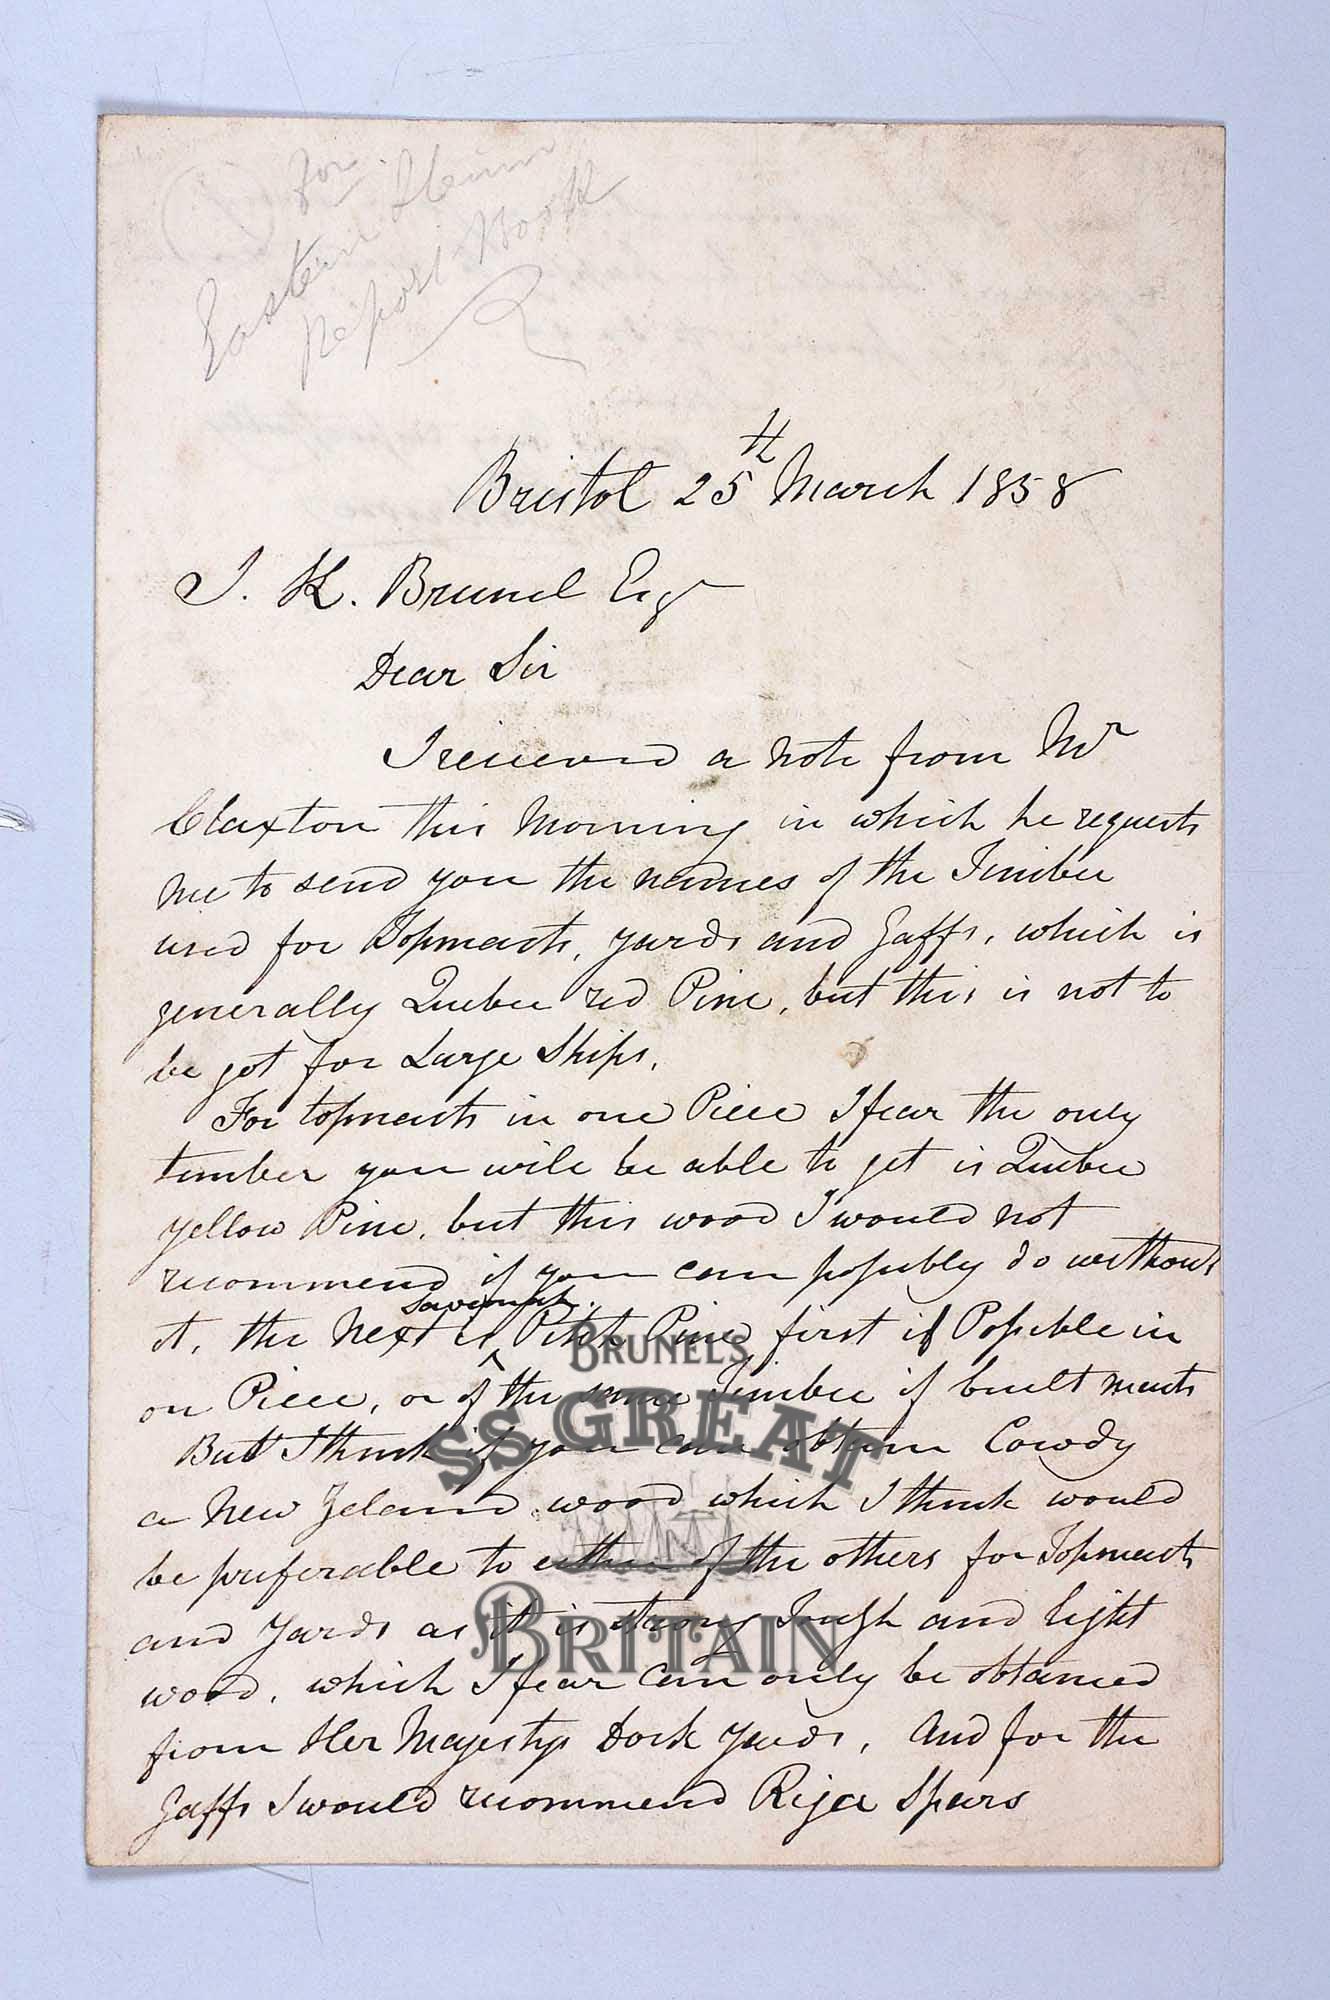 For
Eastern Steam
Report Book
Bristol 25th March 1858
I. K. Brunel Esqr
Dear Sir
I received a note from Mr
Claxton this Morning in which he requests
me to send you the names of the Timber
used for Topmasts, yards and Gaffs, which is
generally Quebec red Pine, but this is not to
be got for Large Ships.
For topmasts in one Piece I fear the only
timber you will be able to get is Quebec
yellow Pine, but this wood I would not
recommend if you can possibly do without
it, the Next is Savannah Pitch Pine first if Possible in
on Piece, or of the same Timber if built masts
But I think if you can obtain Cowdy
a New Zeland wood which I think would
be preferable to either of the others for Topmasts
and Yards as it is strong Tough and light
wood, which I fear can only be obtained
from Her Majestys Dock Yards, And for the
Gaffs I would recommend Riga Spars
BRUNEL'S
SS GREAT
BRITAIN